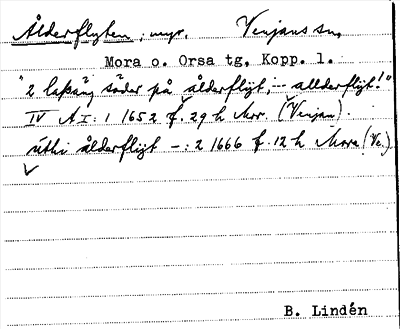 Ålderflyten, myr. Venjans sn,
Mora o. Orsa tg, Kopp. l.
"2 laßäng söder på ålderflÿt, -- allderflÿt!"
IV AI: 1 1652 f. 29 h Mor. (Venjan).
uthi ålderflÿt -: 2 1666 f. 12 h Mora (Ve.)
B. Lindén